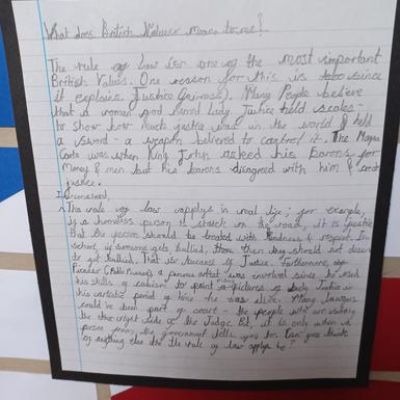 What does British Values mean to me?
The rule of law is one of the most important
British Values. One reason for this is also since
it explains Justice (fairness). Many People believe
that a women god named Lady Justice held scales -
to show how much justice was in the world & held
a sword - a weapon believed to control it. The Magna
Carta was when King John asked his barons for
money & men but his barons disagreed with him &
justice.
The rule of law applys in real life; for example,
if a homeless person is on the road, it is
But the person should be treated with kindness & respect. In
school, if someone gets bullied, then they should not deserve
to get bullied. That is because of Justice. Furthermore,
Picasso a famous artist was involved since he used
his skills of cubism to paint pictures of Lady Justice in
his period of time he was alive. Many lawyers
could've been part of court - the people who are usually
the side of the Judge. But, it is only when
the government tells you to. Can you think
of anything else that the rule of law applys to?